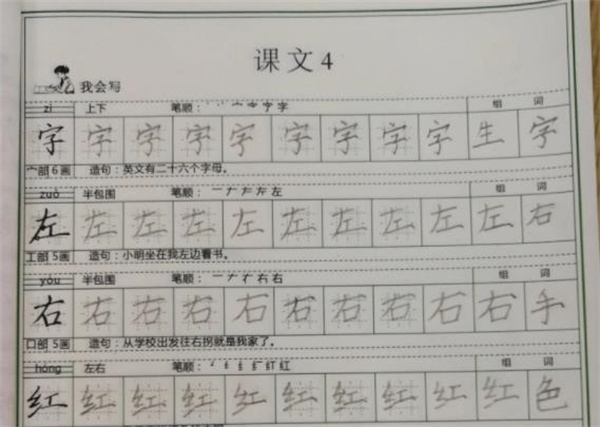 课文4
我会写
zì 上下 笔顺： 字 组 词
字 字 字 字 字 字 字 字 字 生 字
宀部6画 造句：英文有二十六个字母。
zuǒ 半包围 笔顺：一ナ 左 组 词
左 左 左 左 左 左 左 左 左 左 右
工部5画 造句：小明坐在我左边看书。
yòu 半包围 笔顺：一ナ 右右 组 词
右 右 右 右 右 右 右 右 右 右 手
口部5画 造句：从学校出发往右拐就是我家了。
hóng 左右 笔顺： 红 组 词
红 红 红 红 红 红 红 红 红 红 色